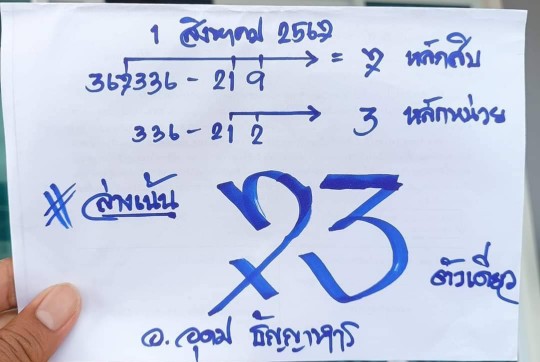 1 สิงหาคม 2567
367336 - 219 → = 7 หลักสิบ
336 - 212 → 3 หลักหน่วย
# ล่างเน้น 73 ตัวเดียว
อ. อุดม ธัญญาหาร